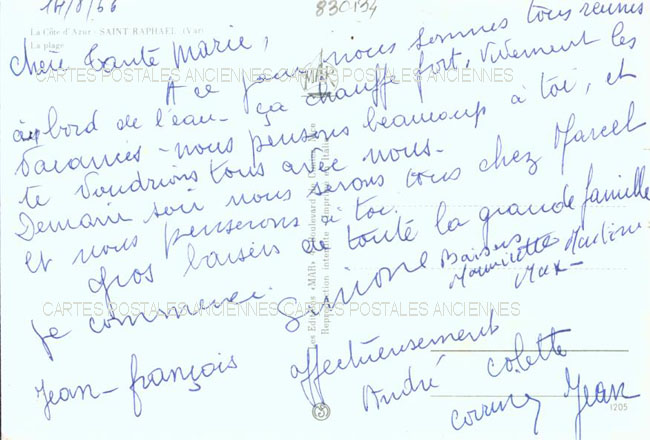 14/8/66
830134
La Côte d'Azur - SAINT RAPHAEL (Var)
La plage
Chère Tante Marie,
A ce jour nous sommes tous réunis
au bord de l'eau - ça chauffe fort, vivement les
vacances - nous pensons beaucoup à toi, et
te voudrions tous avec nous.
Demain soir nous serons tous chez Marcel
et nous penserons à toi.
Gros baisers de toute la grande famille
je commence. Simone Baisers
Mauricette Martine
Max -
Jean-françois affectueusement
André Colette
Jean
CARTES POSTALES ANCIENNES CARTES POSTALES ANCIENNES
CARTES POSTALES ANCIENNES CARTES POSTALES ANCIENNES
Les Editions «MAR»
Reproduction interdite Imprimé en Italie
1205